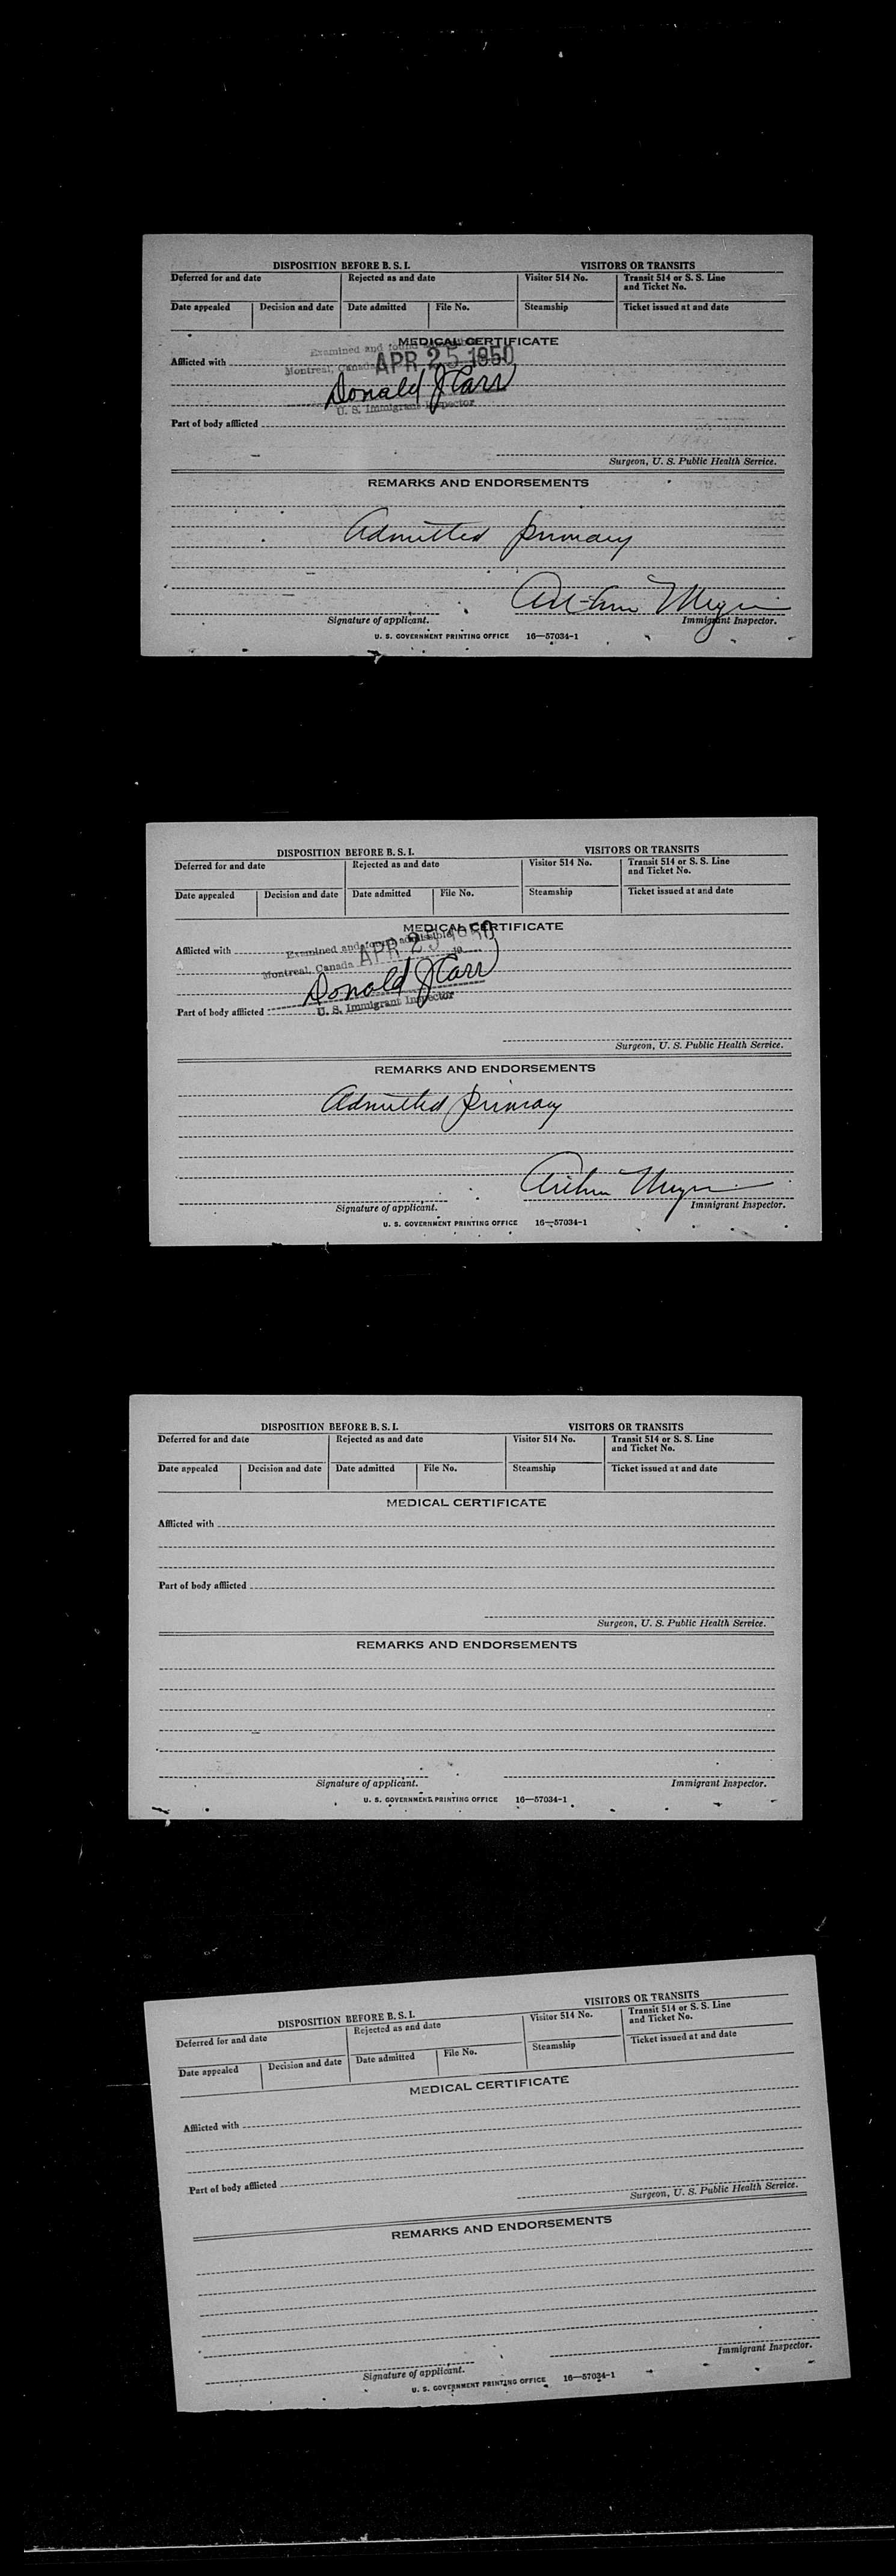 DISPOSITION BEFORE B. S. I. VISITORS OR TRANSITS
Deferred for and date Rejected as and date Visitor 514 No. Transit 514 or S. S. Line and Ticket No.
Date appealed Decision and date Date admitted File No. Steamship Ticket issued at and date
MEDICAL CERTIFICATE
Examined and found
Afflicted with
Montreal, Canada APR 25 1950
Donald J Carr
U. S. Immigrant Inspector
Part of body afflicted
Surgeon, U. S. Public Health Service.
REMARKS AND ENDORSEMENTS
Admitted primary
Arthur
Signature of applicant. Immigrant Inspector.
U. S. GOVERNMENT PRINTING OFFICE 16—57034-1
DISPOSITION BEFORE B. S. I. VISITORS OR TRANSITS
Deferred for and date Rejected as and date Visitor 514 No. Transit 514 or S. S. Line and Ticket No.
Date appealed Decision and date Date admitted File No. Steamship Ticket issued at and date
MEDICAL CERTIFICATE
Examined and found admissible
Afflicted with
Montreal, Canada APR 25 1950 19
Donald J Carr
U. S. Immigrant Inspector
Part of body afflicted
Surgeon, U. S. Public Health Service.
REMARKS AND ENDORSEMENTS
Admitted primary
Arthur
Signature of applicant. Immigrant Inspector.
U. S. GOVERNMENT PRINTING OFFICE 16—57034-1
DISPOSITION BEFORE B. S. I. VISITORS OR TRANSITS
Deferred for and date Rejected as and date Visitor 514 No. Transit 514 or S. S. Line and Ticket No.
Date appealed Decision and date Date admitted File No. Steamship Ticket issued at and date
MEDICAL CERTIFICATE
Afflicted with
Part of body afflicted
Surgeon, U. S. Public Health Service.
REMARKS AND ENDORSEMENTS
Signature of applicant. Immigrant Inspector.
U. S. GOVERNMENT PRINTING OFFICE 16—57034-1
DISPOSITION BEFORE B. S. I. VISITORS OR TRANSITS
Deferred for and date Rejected as and date Visitor 514 No. Transit 514 or S. S. Line and Ticket No.
Date appealed Decision and date Date admitted File No. Steamship Ticket issued at and date
MEDICAL CERTIFICATE
Afflicted with
Part of body afflicted
Surgeon, U. S. Public Health Service.
REMARKS AND ENDORSEMENTS
Signature of applicant. Immigrant Inspector.
U. S. GOVERNMENT PRINTING OFFICE 16—57034-1